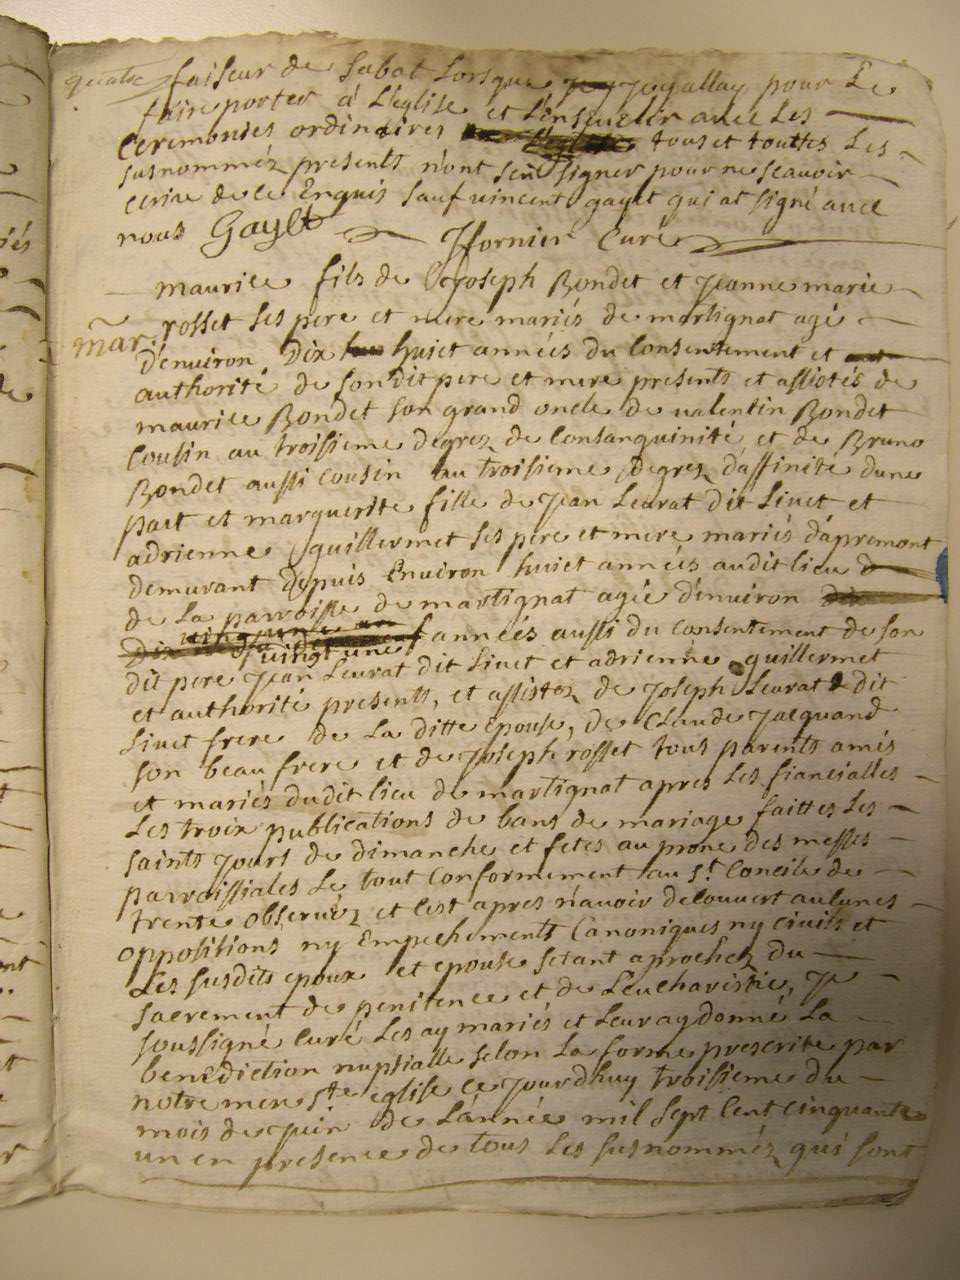 quatre
faiseur de sabot Lorsque je y allay pour Le
faire porter á L'eglise et L'ensevelir avec Les
Ceremonies ordinaires tous et touttes Les
susnomméz presents n'ont sçu signer pour ne scavoir
ecrire de ce Enquis sauf vincent gayet qui at signé avec
nous Gayet Jfornier Curé
maurice fils de Joseph Bondet et Jeanne marie
mar. rosset ses pere et mere mariés de martignat agé
d'environ Dix huict années du Consentement et
authorité de son dit pere et mere presents et assistés de
maurice Bondet son grand oncle de valentin Bondet
Cousin au troisieme degrez de Consanguinité et de Bruno
Bondet aussi cousin au troisieme degrez d'affinité dune
part et marguerite fille de Jean Levrat dit Livet et
adrienne guillermet ses pere et mere mariés d'apremont
demurant depuis Environ huict années audit lieu
de La parroisse de martignat agée d'environ
vingt une années aussi du consentement de son
dit pere Jean Levrat dit Livet et adrienne guillermet
et authorité presents, et assistez de Joseph Levrat dit
Livet frere de La ditte epouse, de Claude Jacquand
son beau frere et de Joseph rosset tous parents amis
et mariés dudit lieu de martignat apres Les fiancialles
Les troix publications de bans de mariage faittes Les
saints Jours de dimanche et fetes au prone des messes
parroissiales Le tout Conformement au St. Concile de
trente observéz et C'est apres n'avoir decouvert aulunes
oppositions ny Empechements Canoniques ny civils et
Les susdits epoux et epouse setant aprochez du
sacrement de penitence et de Leucharistie, Je
soussigné Curé Les ay mariés et Leur ay donné La
benediction nuptialle selon La forme prescrite par
notre mere Ste eglise ce Jourdhuy troisieme du
mois de Juin de L'année mil sept Cent Cinquante
un en presence de tous Les susnomméz qui sont